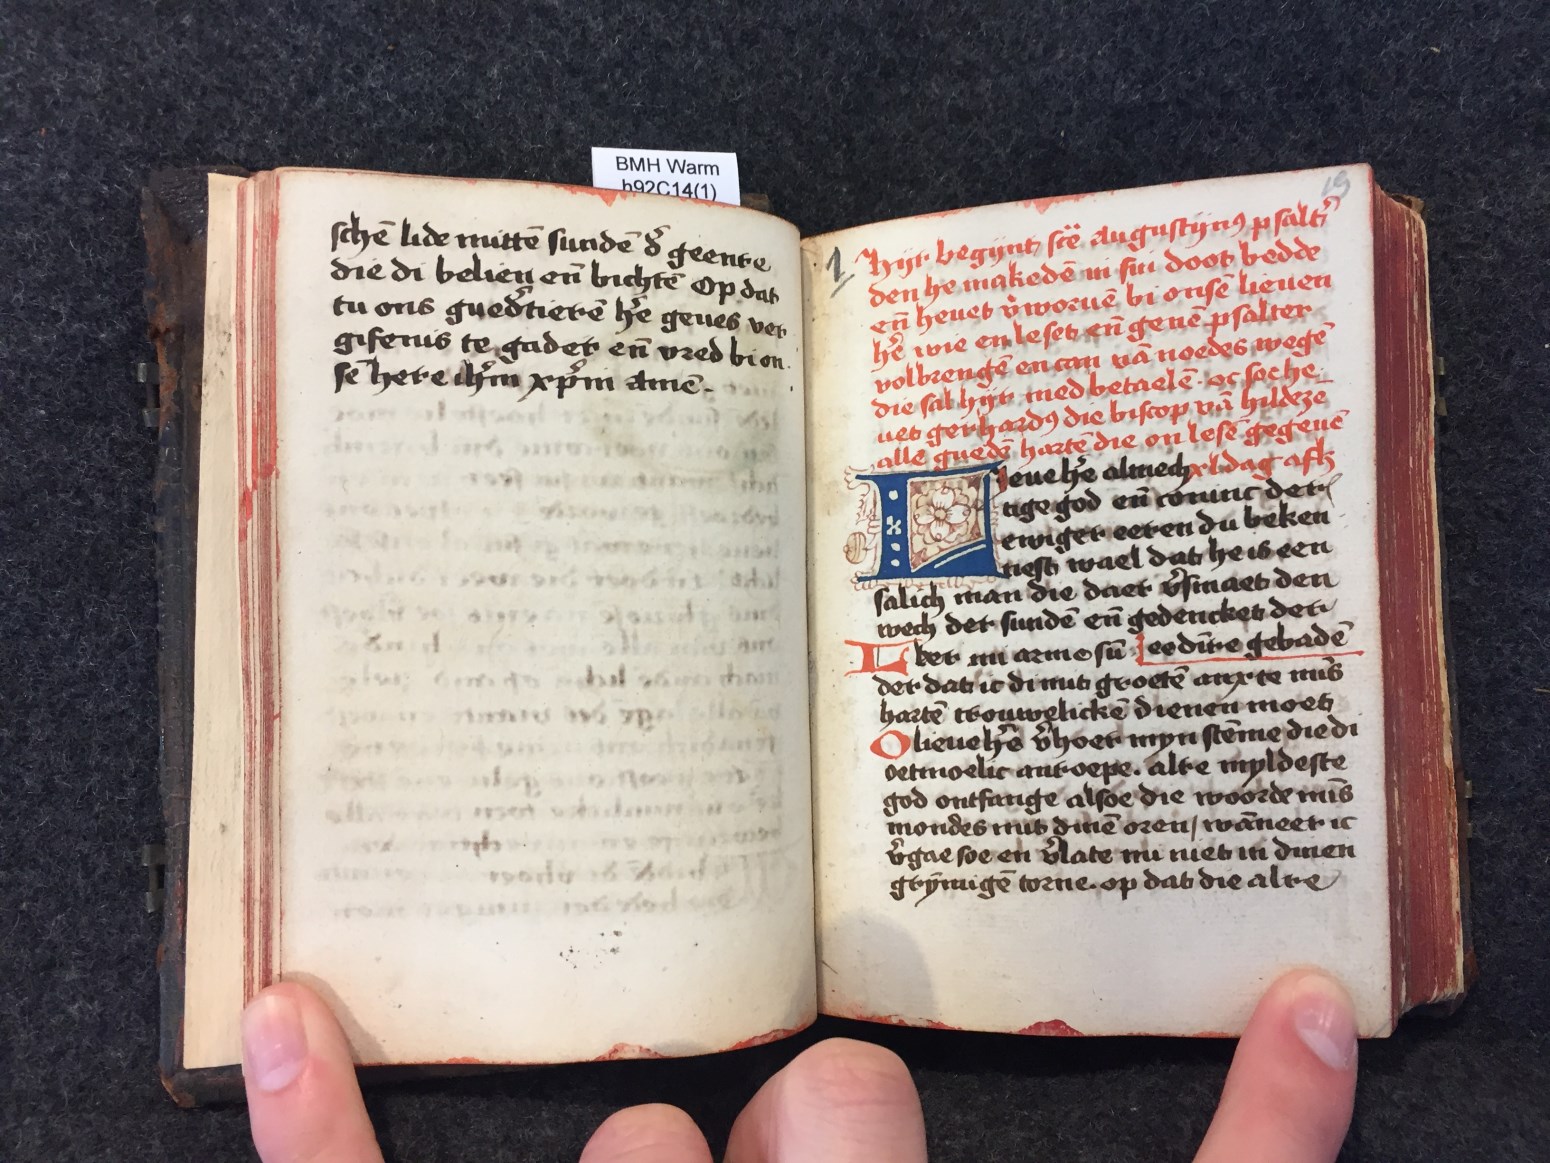 BMH Warm
h92C14(1)
schē lide mittē sundē d̕ geenre
die di belien en̄ bichtē Op dat
tu ons gued̕tierē h̕e geues ver
gifenis te gader en̄ vred bi on
sē here ih̄m xp̄m amē.
19
1
Hijr begijnt sc̄e augustijn9 psalt̕
den he makedē in sin doot bedde
en̄ heuet v̕woruē bi onsē lieuen
h̕e wie en leset en̄ genē psalter
volbrengē en can vā noedes wegē
die sal hijr med betaelē. oc so he
uet gerhard9 die biscop vā hildeze
alle guedē hartē die on lesē gegeuē
xl dag afl̕
Lieue h̕e almech
tige god en̄ coninc der
ewiger eeren du beken
nest wael dat he is een
salich man die daer v̕smaet den
wech der sundē en̄ gedencket der
leed̄ire gebadē
Eker mi arme sū
der dat ic di mit groetē anxte mīs
hartē trouwelickē dienen moet
O lieue h̕e v̕hoer myn stēme die di
oetmoelic anroepe. alre myldeste
god ontfange alsoe die woorde mīs
mondes mit dinē oren/ wāneer ic
v̕gae soe en v̕late mi niet in dinen
grymigē torne. op dat die alre